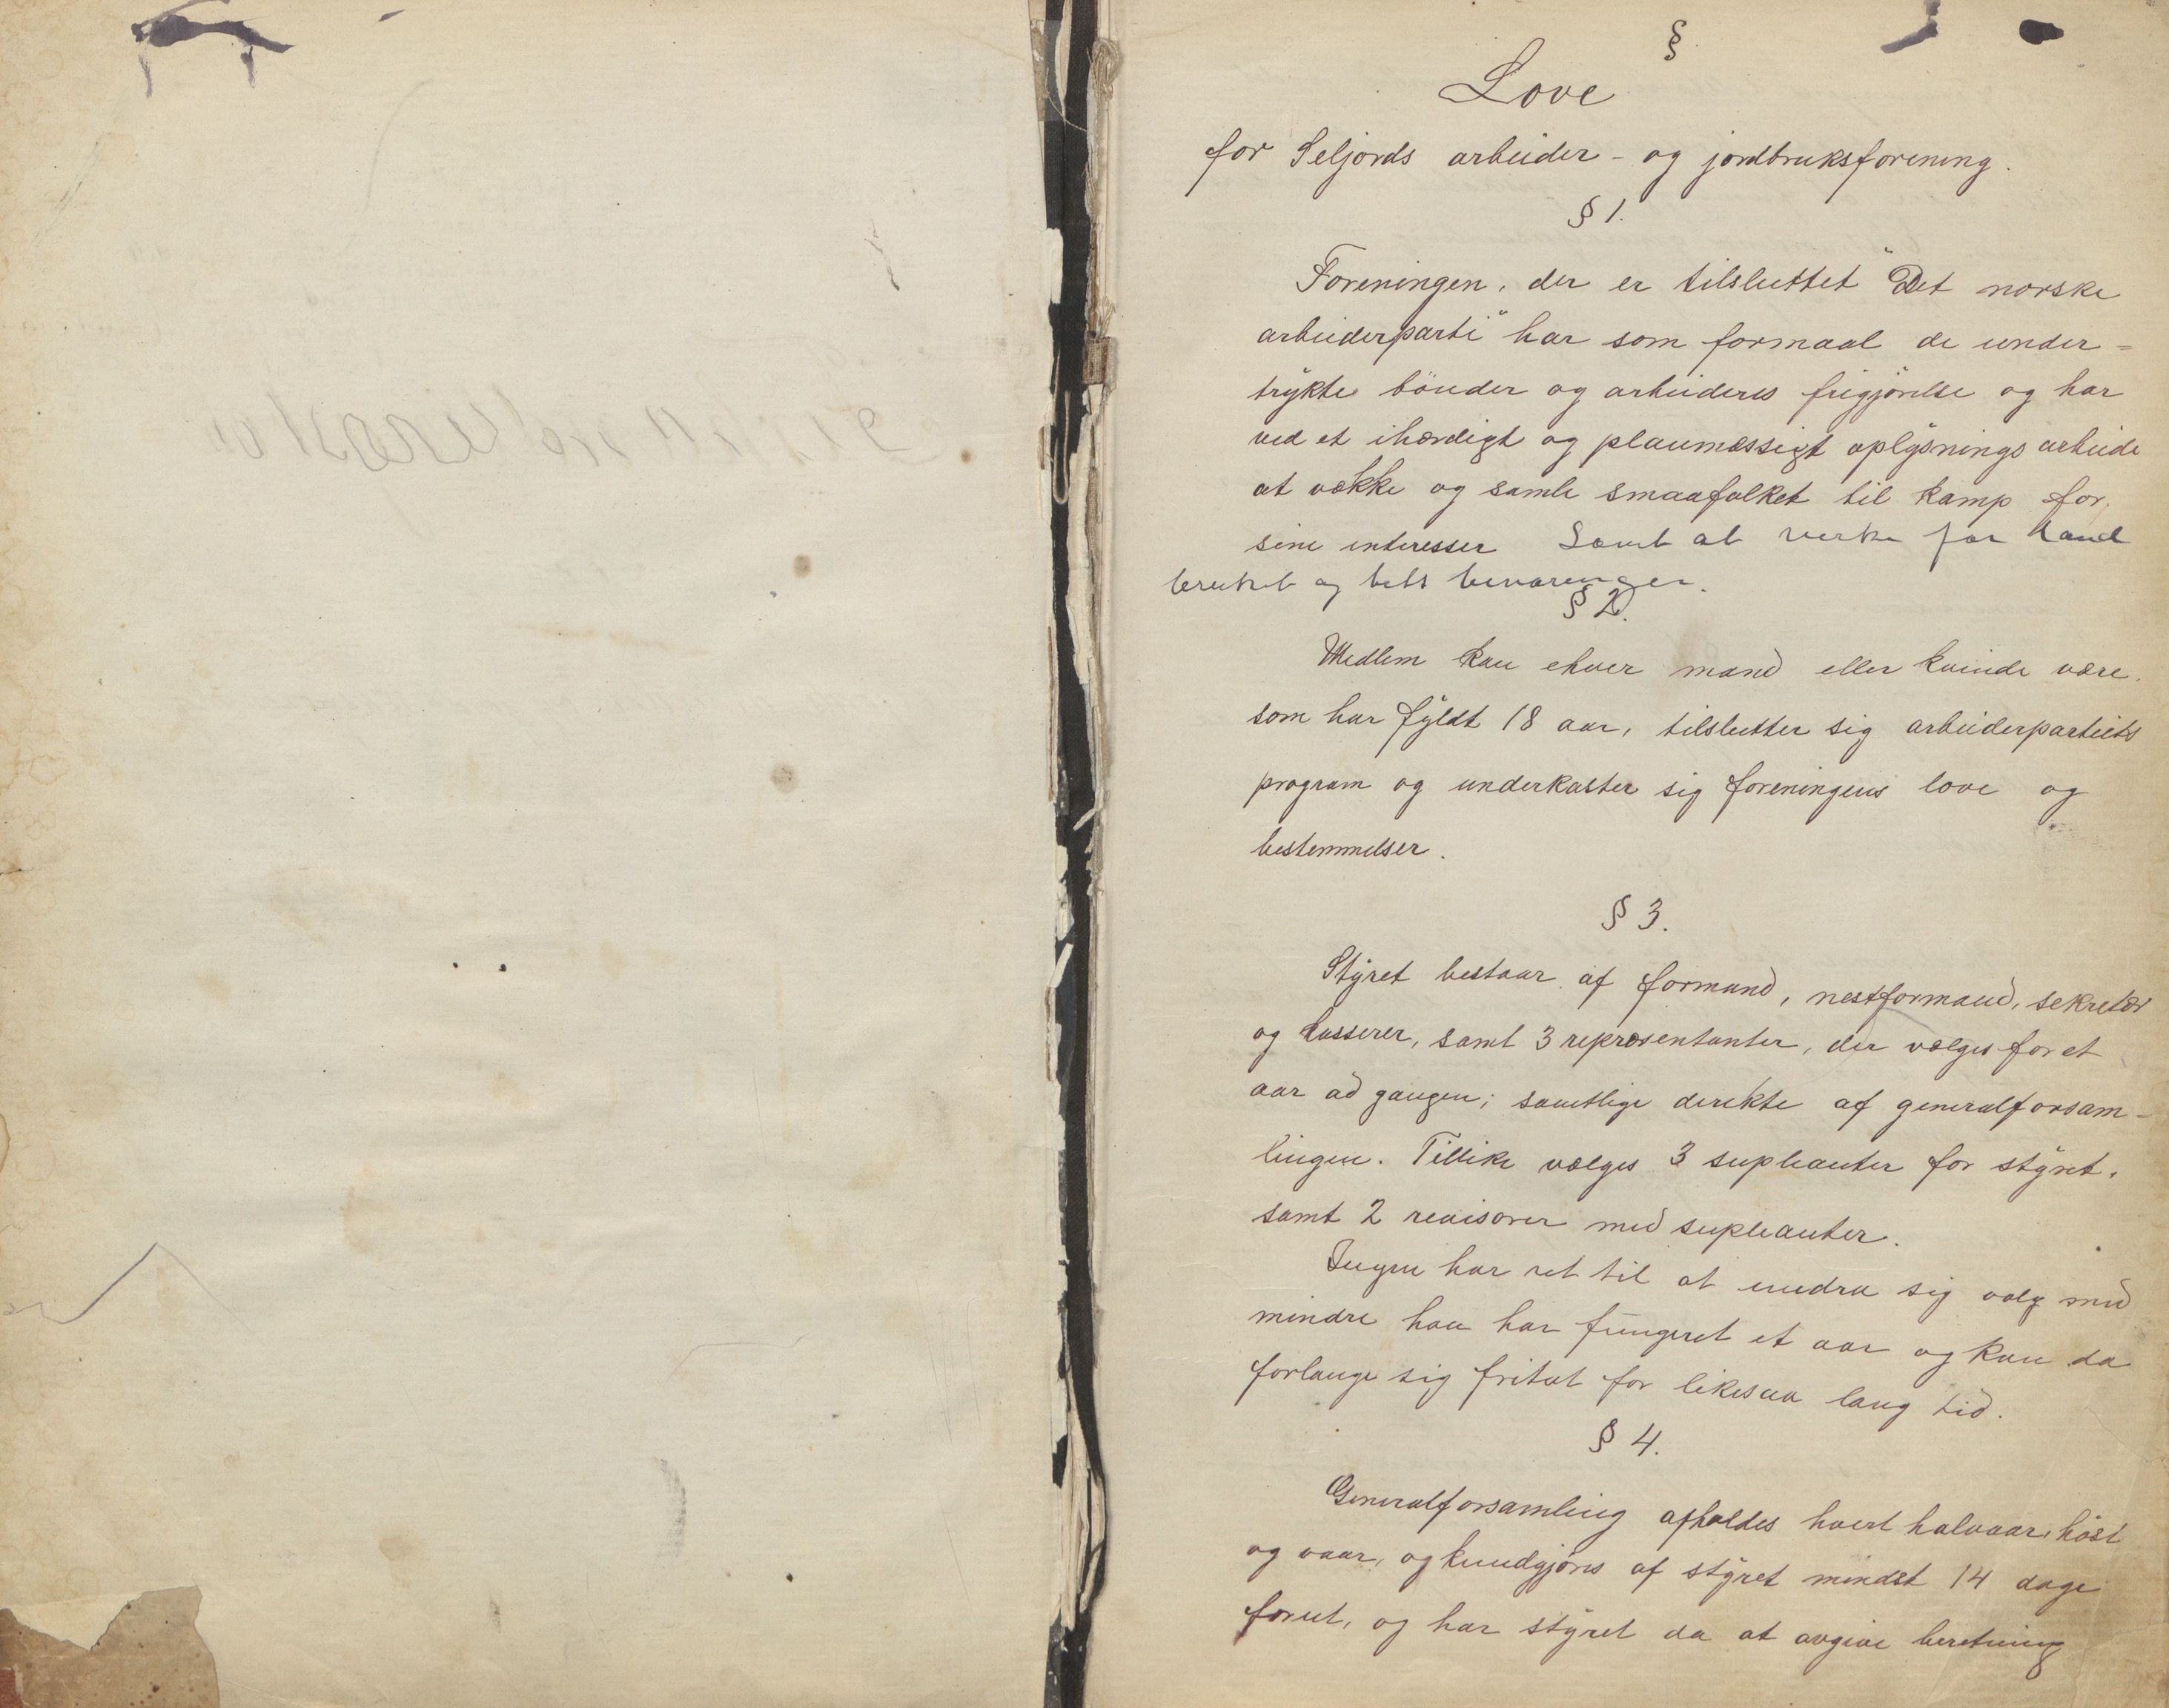 §
Love
for Seljords arbeider - og jordbruksforening.
§ 1.
Foreningen, der er tilsluttet "Det norske
arbeiderparti" har som formaal de under=
trykte bönder og arbeideres frigjörelse og har
ved et ihærdigt og planmæssigt oplysnings arbeide
at vække og samle smaafolket til kamp for
sine interesser Samt at verke for Land
bruket og dets bevaringer.
§ 2.
Medlem kan ehver mand eller kvinde være,
som har fyldt 18 aar, tilslutter sig arbeiderpartiets
program og underkaster sig foreningens love og
bestemmelser.
§ 3.
Styret bestaar af formand, nestformand, sekretær
og kasserer, samt 3 repræsentanter, der vælges for et
aar ad gangen; samtlige direkte af generalforsam-
lingen. Tillike vælges 3 supleanter for styret,
samt 2 revisorer med supleanter.
Ingen har ret til at undra sig valg med
mindre han har fungeret et aar og kan da
forlange sig fritat for likesaa lang tid.
§ 4.
Generalforsamling afholdes hvert halvaar, höst
og vaar, og kundgjöres af styret mindst 14 dage
forut, og har styret da at avgive beretning